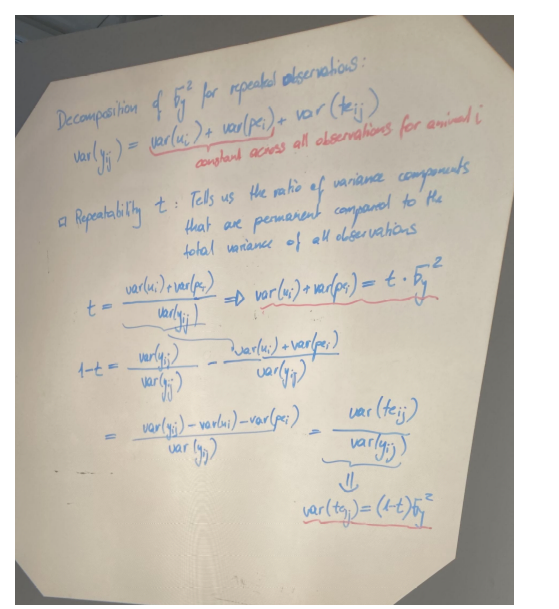 Decomposition of σy² for repeated observations:
var(yij) = var(ui) + var(pei) + var(teij)
constant across all observations for animal i
□ Repeatability t: Tells us the ratio of variance components
that are permanent compared to the
total variance of all observations
t = (var(ui)+var(pei)) / var(yij) ⇒ var(ui)+var(pei) = t · σy²
1-t = var(yij) / var(yij) - (var(ui)+var(pei)) / var(yij)
= (var(yij)-var(ui)-var(pei)) / var(yij) = var(teij) / var(yij)
⇓
var(teij) = (1-t)σy²